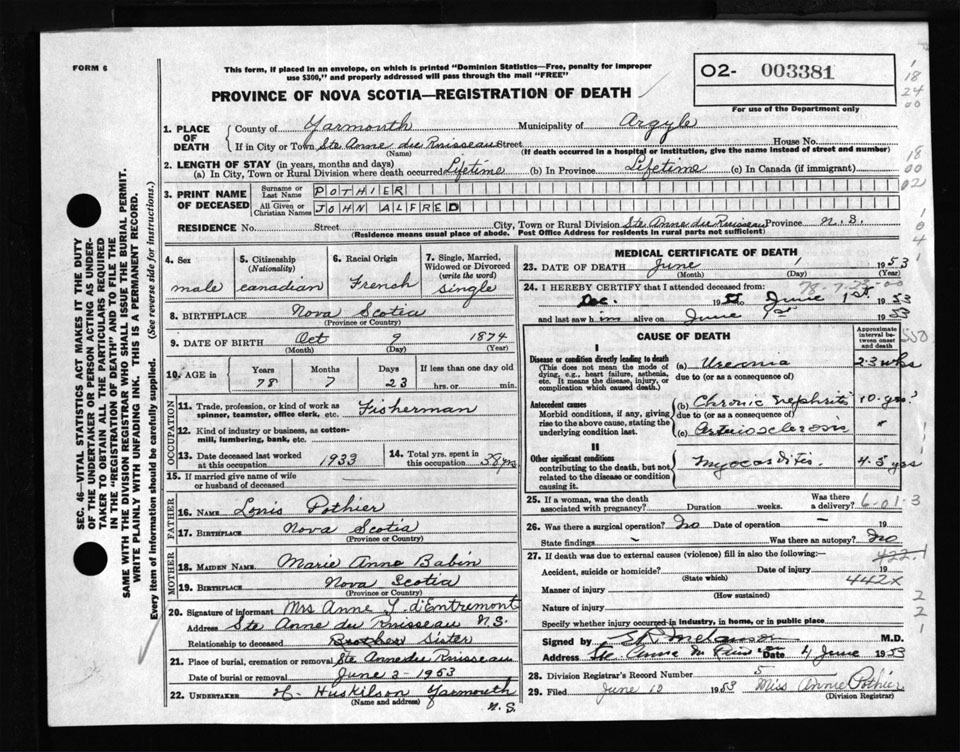 FORM 6
This form, if placed in an envelope, on which is printed "Dominion Statistics—Free, penalty for improper
use $300," and properly addressed will pass through the mail "FREE"
02- 003381
For use of the Department only
PROVINCE OF NOVA SCOTIA—REGISTRATION OF DEATH
1. PLACE OF DEATH
County of Yarmouth Municipality of Argyle
If in City or Town Ste Anne du Ruisseau Street House No.
(Name) (If death occurred in a hospital or institution, give the name instead of street and number)
2. LENGTH OF STAY (in years, months and days)
(a) In City, Town or Rural Division where death occurred Lifetime (b) In Province Lifetime (c) In Canada (if immigrant)
3. PRINT NAME OF DECEASED
Surname or Last Name POTHIER
All Given or Christian Names JOHN ALFRED
RESIDENCE No. Street City, Town or Rural Division Ste Anne du Ruisseau Province N.S.
(Residence means usual place of abode. Post Office Address for residents in rural parts not sufficient)
4. Sex
male
5. Citizenship
(Nationality)
canadian
6. Racial Origin
French
7. Single, Married,
Widowed or Divorced
(write the word)
single
8. BIRTHPLACE Nova Scotia
(Province or Country)
9. DATE OF BIRTH Oct 9 1874
(Month) (Day) (Year)
10. AGE in
Years Months Days If less than one day
78 7 23 hrs. or min.
OCCUPATION
11. Trade, profession, or kind of work as
spinner, teamster, office clerk, etc. Fisherman
12. Kind of industry or business, as cotton-
mill, lumbering, bank, etc.
13. Date deceased last worked
at this occupation 1933
14. Total yrs. spent in
this occupation 38 yrs
15. If married give name of wife
or husband of deceased
FATHER
16. NAME Louis Pothier
17. BIRTHPLACE Nova Scotia
(Province or Country)
MOTHER
18. MAIDEN NAME Marie Anne Babin
19. BIRTHPLACE Nova Scotia
(Province or Country)
20. Signature of informant Mrs Anne L. d'Entremont
Address Ste Anne du Ruisseau N.S.
Relationship to deceased Brother Sister
21. Place of burial, cremation or removal Ste Anne du Ruisseau
Date of burial or removal June 3 - 1953
22. UNDERTAKER H. Huskilson Yarmouth
(Name and address) N.S.
MEDICAL CERTIFICATE OF DEATH
23. DATE OF DEATH June 1 1953
(Month) (Day) (Year)
24. I HEREBY CERTIFY that I attended deceased from:
78-7-23-00
Dec. 195 June 1st 1953
and last saw him alive on June 1st 1953
CAUSE OF DEATH
Approximate
interval between
onset
and death
I
Disease or condition directly leading to death
(This does not mean the mode of
dying, e.g., heart failure, asthenia,
etc. It means the disease, injury, or
complication which caused death.)
(a) Uremia 2-3 wks
due to (or as a consequence of)
Antecedent causes
Morbid conditions, if any, giving
rise to the above cause, stating the
underlying condition last.
(b) Chronic nephritis 10 yrs
due to (or as a consequence of)
(c) Arteriosclerosis "
II
Other significant conditions
contributing to the death, but not
related to the disease or condition
causing it.
Myocarditis 4-5 yrs
25. If a woman, was the death
associated with pregnancy? Duration weeks. Was there
a delivery?
6-01-3
26. Was there a surgical operation? No Date of operation — 19
State findings — Was there an autopsy? No
27. If death was due to external causes (violence) fill in also the following:—
Accident, suicide or homicide? Date of injury 19
(State which)
442x
Manner of injury
(How sustained)
Nature of injury
Specify whether injury occurred in industry, in home, or in public place
Signed by Melanson M.D.
Address Ste Anne Date 4 June 1953
28. Division Registrar's Record Number 5
29. Filed June 10 1953 Miss Annie Pothier
(Division Registrar)
SEC. 46—VITAL STATISTICS ACT MAKES IT THE DUTY
OF THE UNDERTAKER OR PERSON ACTING AS UNDER-
TAKER TO OBTAIN ALL THE PARTICULARS REQUIRED
IN THE "REGISTRATION OF DEATH" AND TO FILE THE
SAME WITH THE DIVISION REGISTRAR WHO SHALL ISSUE THE BURIAL PERMIT.
WRITE PLAINLY WITH UNFADING INK. THIS IS A PERMANENT RECORD.
Every item of information should be carefully supplied. (See reverse side for instructions.)